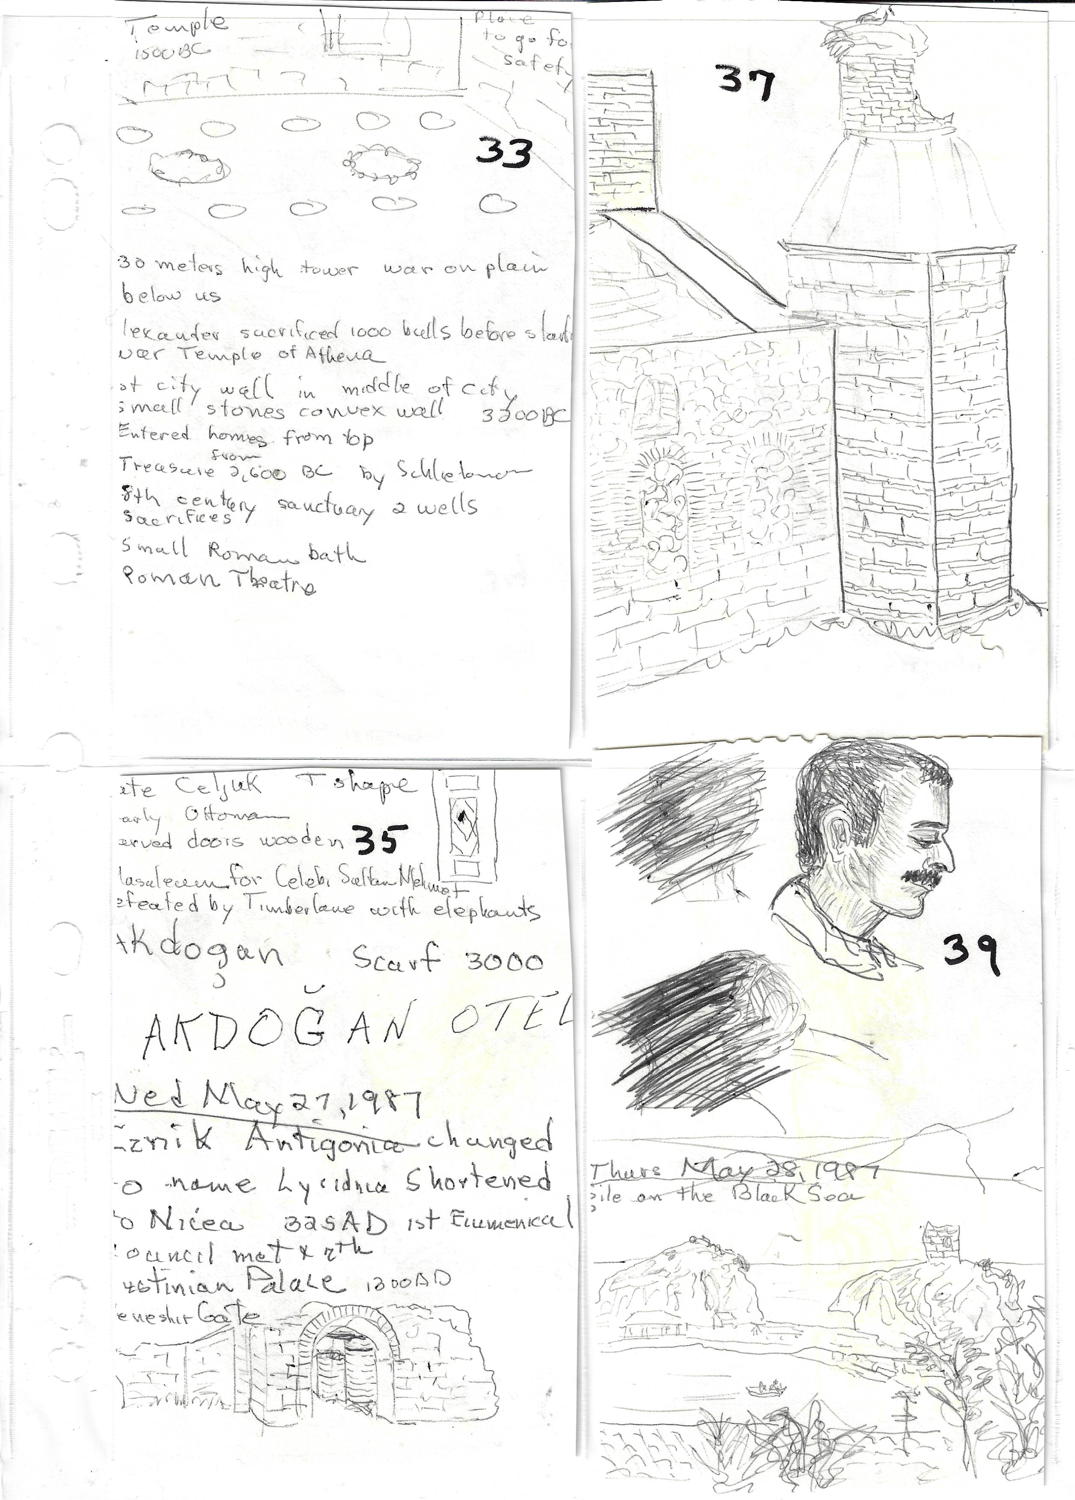 Temple
1500 BC
Place
to go fo
safety
33
30 meters high tower war on plain
below us
lexander sacrificed 1000 bulls before
war Temple of Athena
st city wall in middle of city
small stones convex wall 3200 BC
Entered homes from top
from
Treasure 2,600 BC by
8th century sanctuary 2 wells
sacrifices
Small Roman bath
Roman Theatre
37
ate Celjuk T shape
arly Ottoman
arved doors wooden 35
for Celebi Sultan Mehmet
efeated by Timberlane with elephants
Akdoğan Scarf 3000
AKDOĞAN OTEL
Wed May 27, 1987
Iznik Antigonia changed
to name Shortened
to Nicea 325 AD 1st Ecumenical
ouncil met & 7th
ustinian Palace 1300 AD
eneshir Gate
39
Thurs May 28, 1987
Sile on the Black Sea